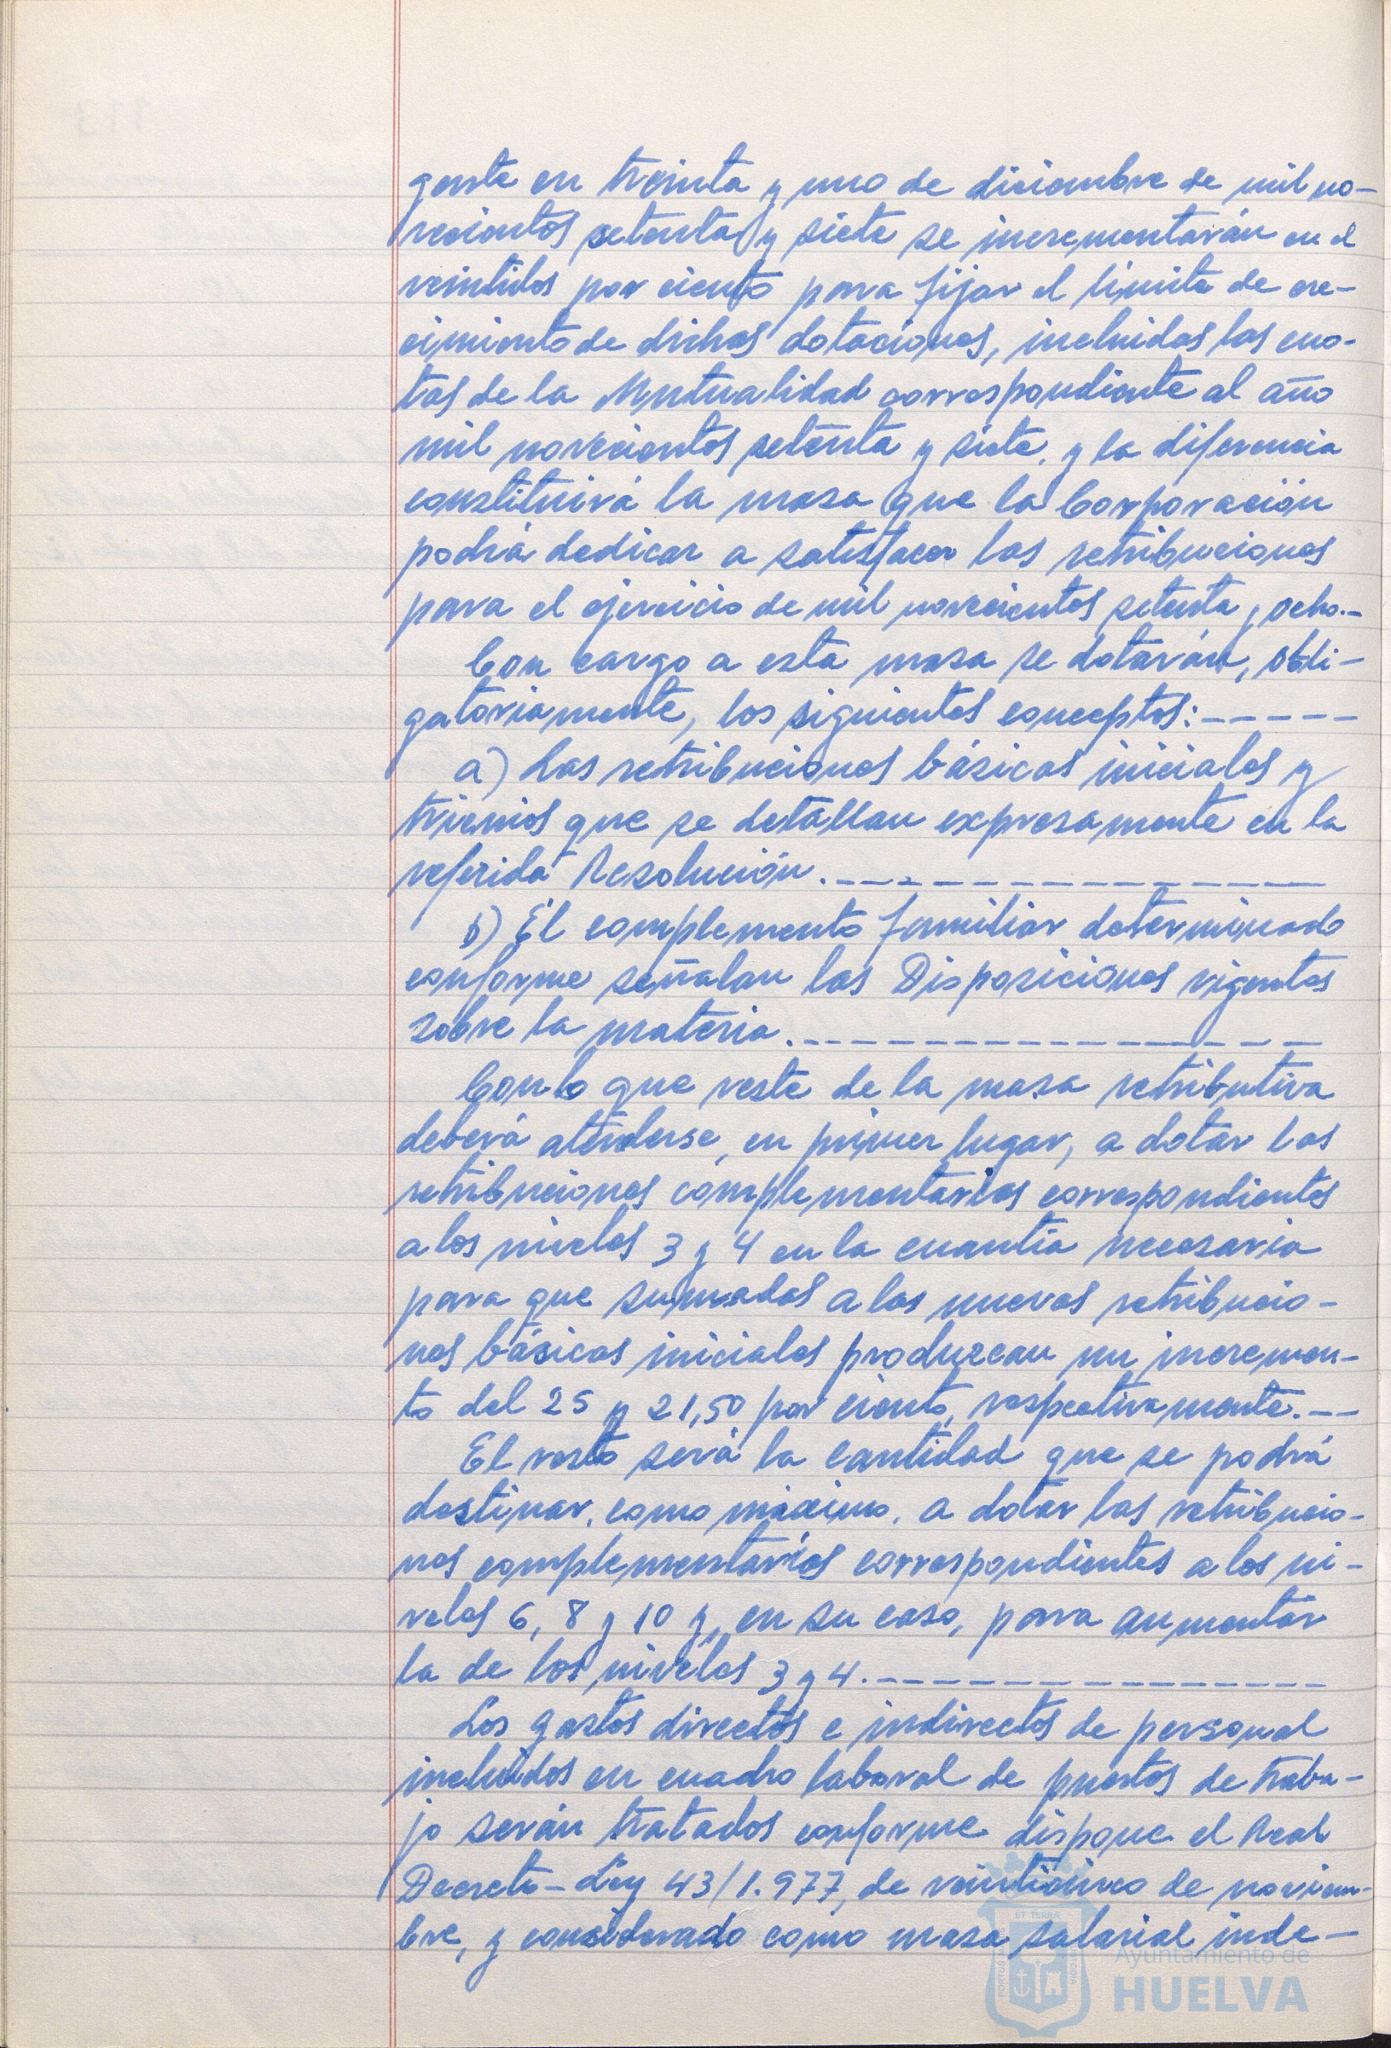 gente en treinta y uno de diciembre de mil no-
vecientos setenta y siete se incrementarán en el
veintidos por ciento para fijar el límite de cre-
cimiento de dichas dotaciones, incluidas las cuo-
tas de la Mutualidad correspondiente al año
mil novecientos setenta y siete, y la diferencia
constituirá la masa que la Corporación
podrá dedicar a satisfacer las retribuciones
para el ejercicio de mil novecientos setenta y ocho.-
Con cargo a esta masa se dotarán, obli-
gatoriamente, los siguientes conceptos:-----
a) Las retribuciones básicas iniciales y
trienios que se detallan expresamente en la
referida Resolución.----------------
b) El complemento familiar determinado
conforme señalan las Disposiciones vigentes
sobre la materia.----------------
Con lo que reste de la masa retributiva
deberá atenderse, en primer lugar, a dotar las
retribuciones complementarias correspondientes
a los niveles 3 y 4 en la cuantía necesaria
para que sumadas a las nuevas retribucio-
nes básicas iniciales produzcan un incremen-
to del 25 y 21,50 por ciento, respectivamente.--
El resto será la cantidad que se podrá
destinar, como máximo, a dotar las retribucio-
nes complementarias correspondientes a los ni-
veles 6, 8 y 10 y, en su caso, para aumentar
la de los niveles 3 y 4.--------------
Los gastos directos e indirectos de personal
incluidos en cuadro laboral de puestos de traba-
jo serán tratados conforme dispone el Real
Decreto-Ley 43/1.977, de veinticinco de noviem-
bre, y considerado como masa salarial inde-
Ayuntamiento de
HUELVA